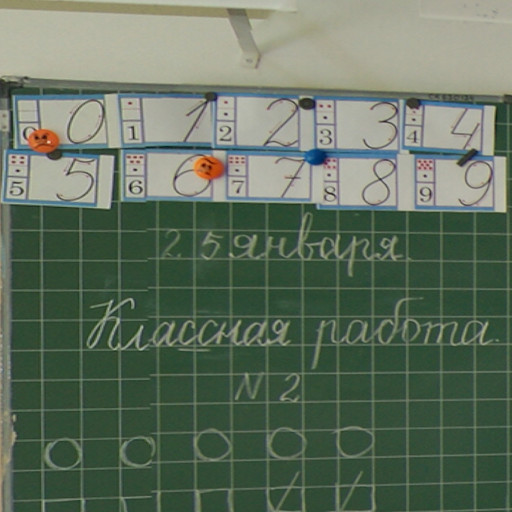 0 0 1 1 2 2 3 3 4 4
5 5 6 6 7 7 8 8 9 9
25 января.
Классная работа.
N 2